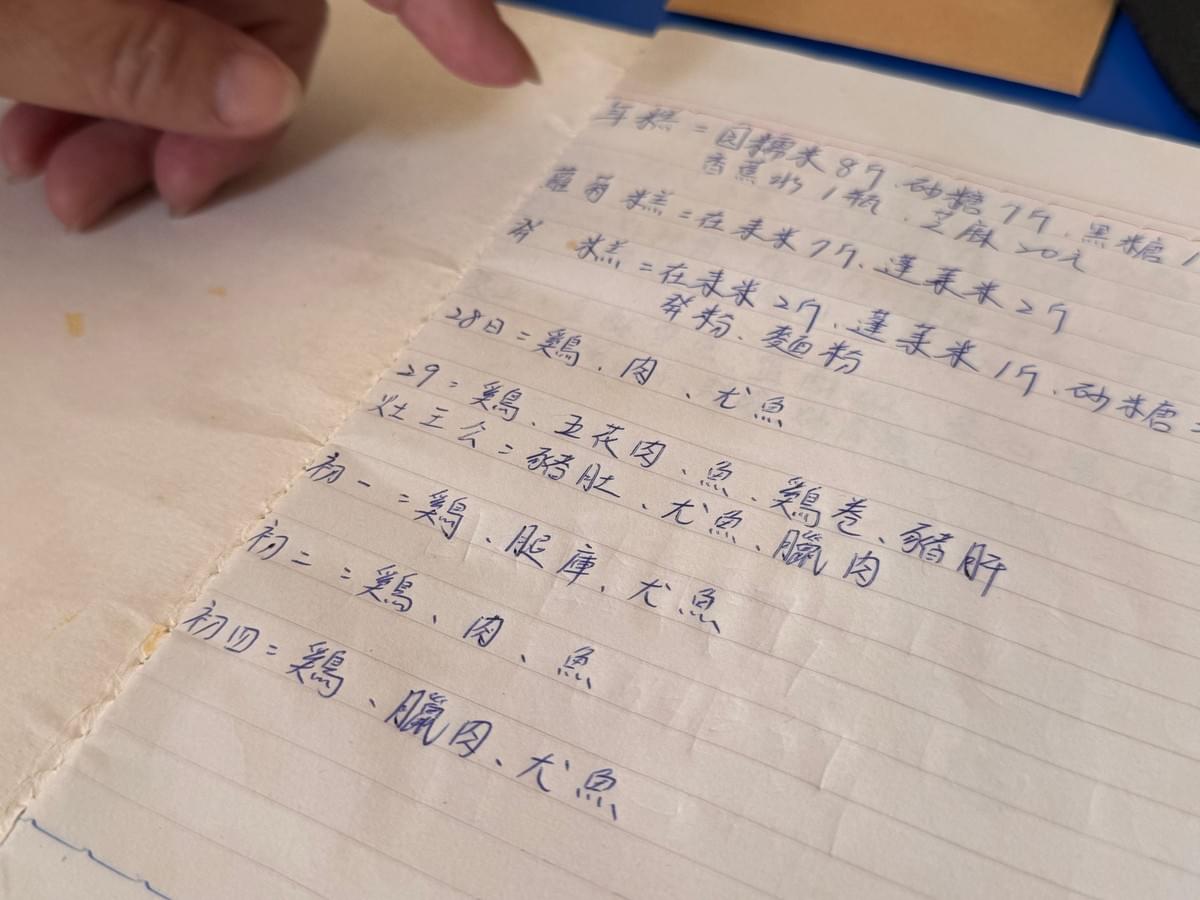 年糕=圓糯米8斤.砂糖7斤.黑糖1
香蕉水1瓶.芝麻20元
蘿蔔糕=在來米7斤.蓬萊米2斤
發 糕=在來米2斤.蓬萊米1斤.砂糖=
發粉.麵粉
28日=鷄.肉、尤魚
29=鷄、五花肉、魚.鷄卷、豬肝
灶王公=豬肚、尤魚、臘肉
初一=鷄、腿庫、尤魚
初二=鷄、肉、魚
初四=鷄、臘肉、尤魚